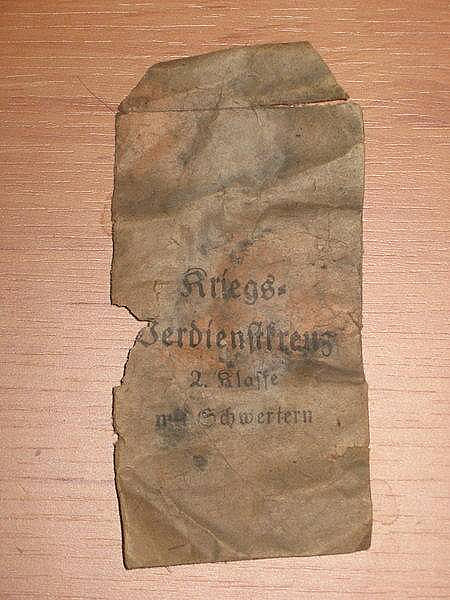 Kriegs-
Verdienstkreuz
2. Klasse
mit Schwertern